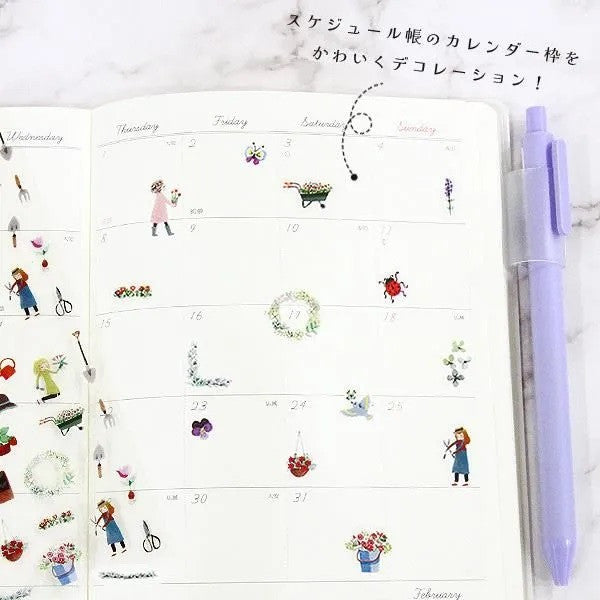 スケジュール帳のカレンダー枠を
かわいくデコレーション！
Wednesday Thursday Friday Saturday Sunday
1 2 3 4
8 9 10
15 16 17 18
23 24 25
30 31
February